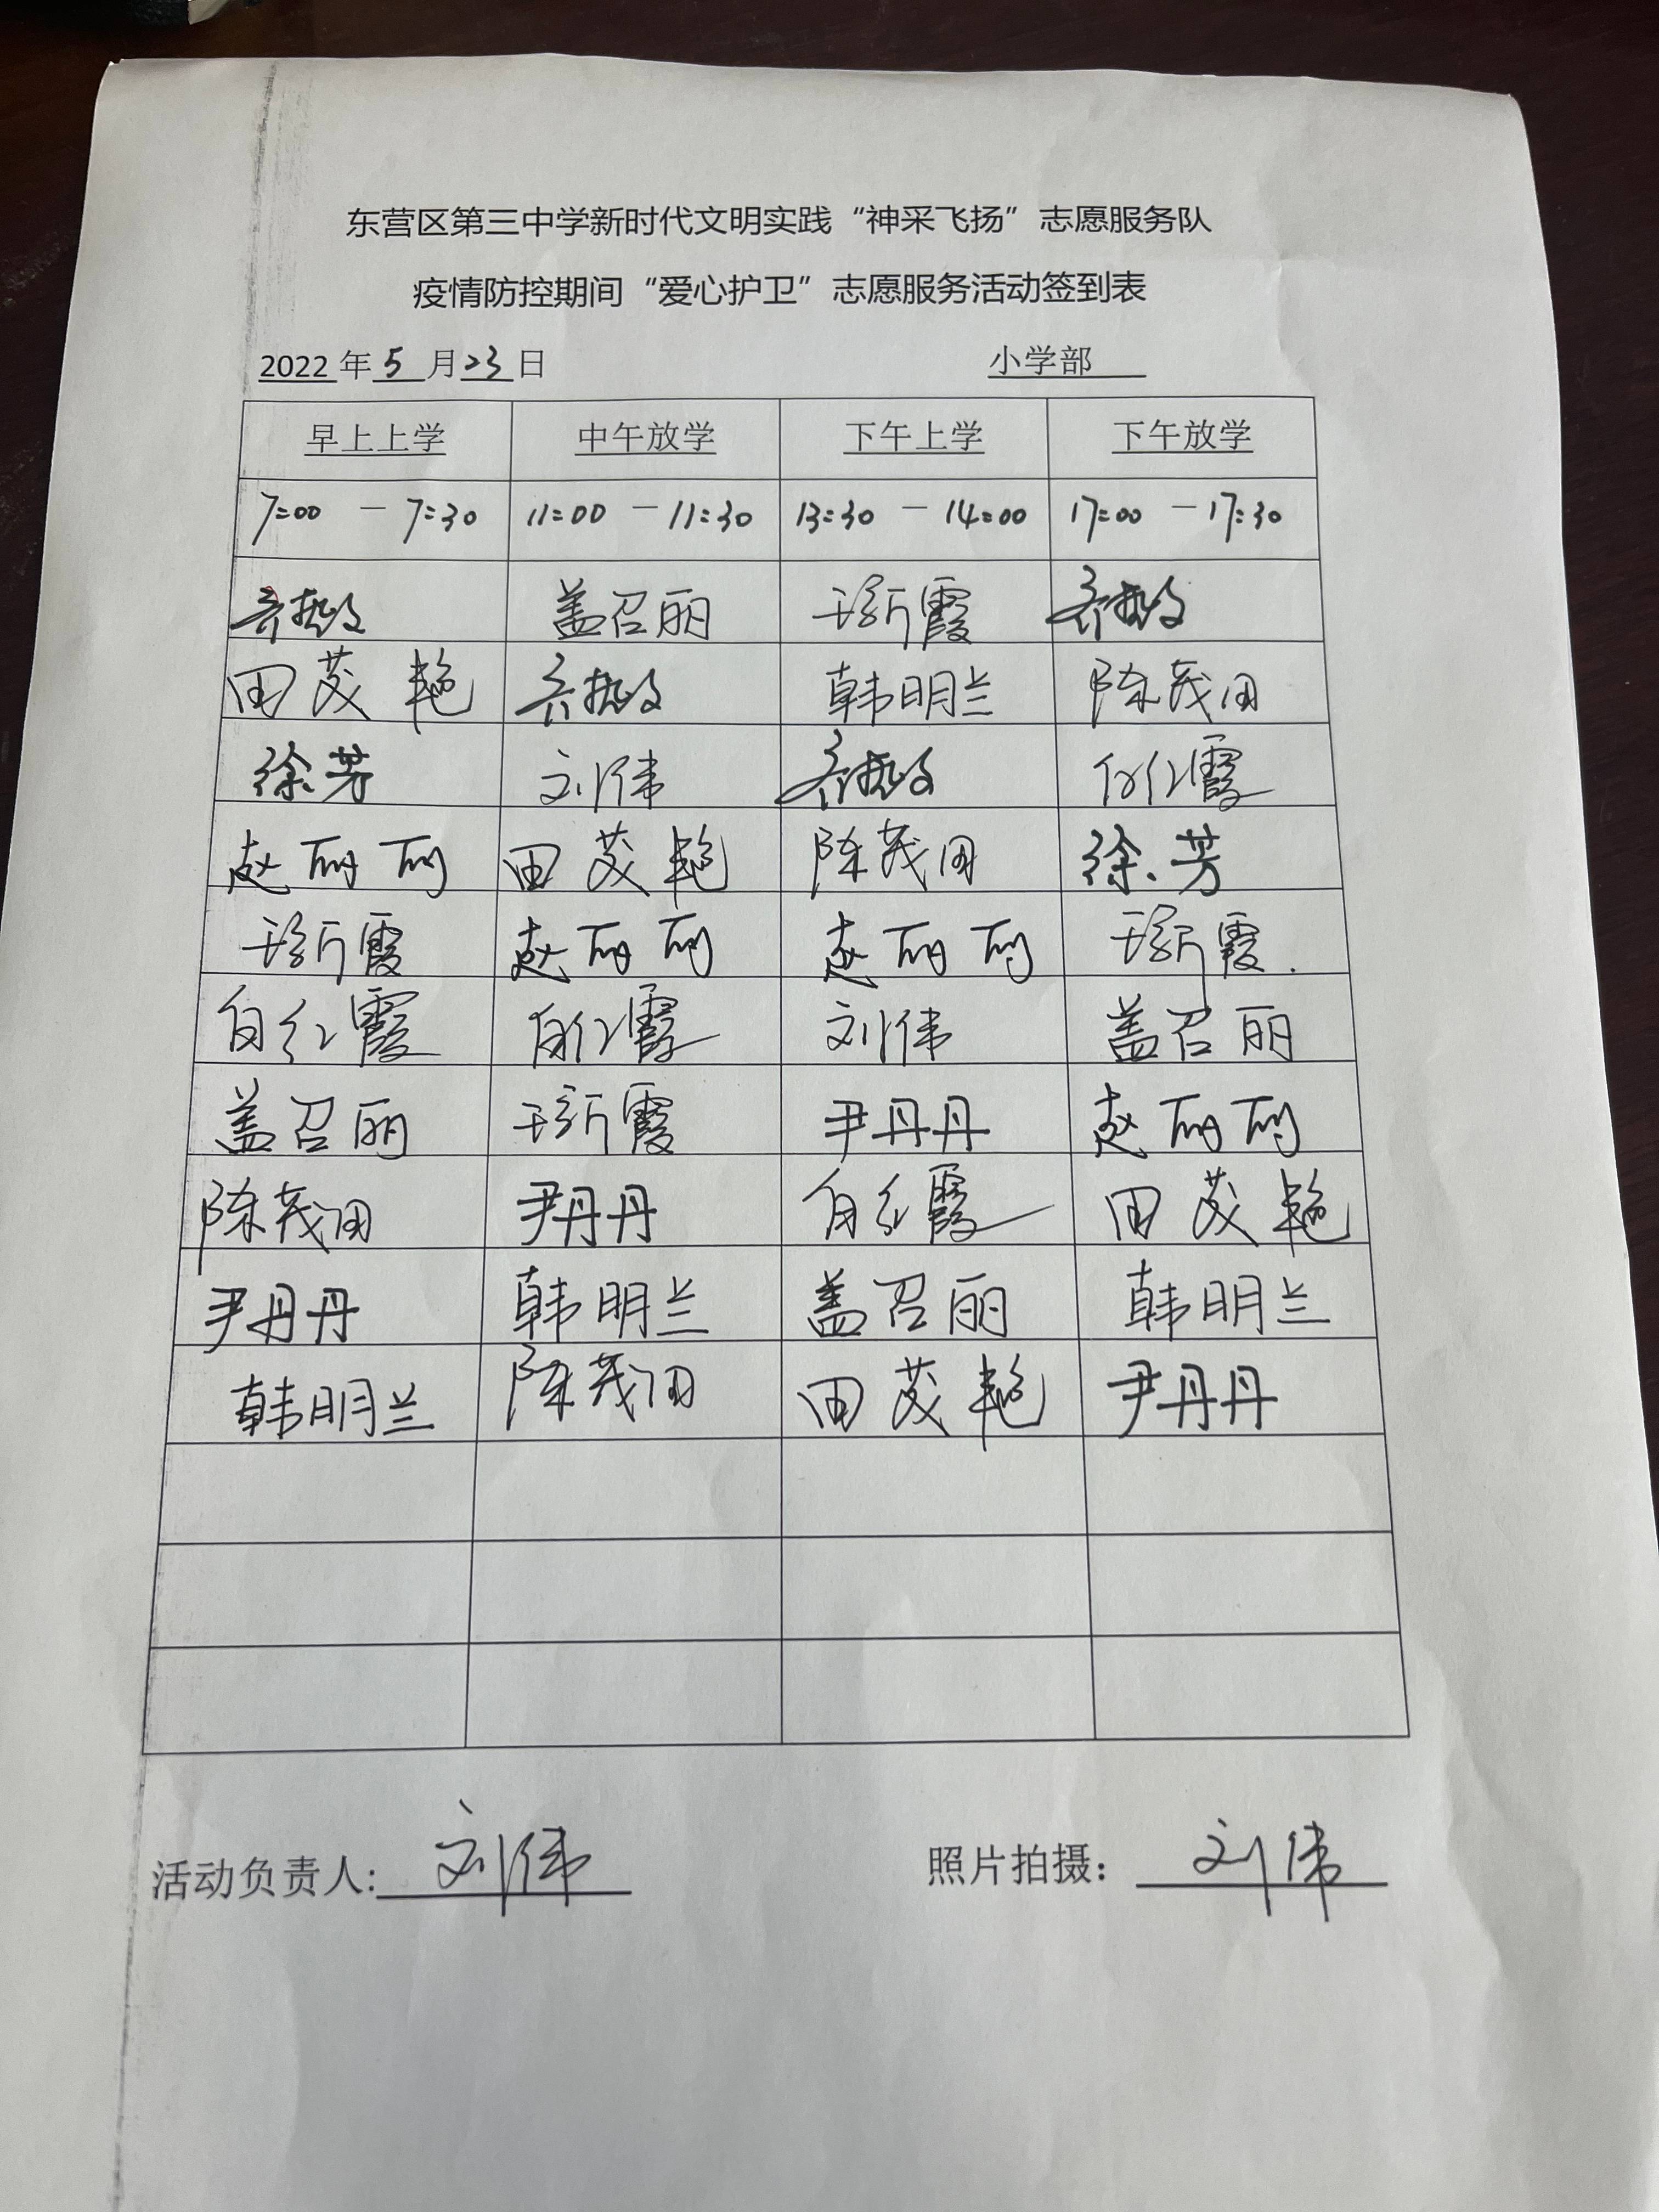 东营区第三中学新时代文明实践“神采飞扬”志愿服务队
疫情防控期间“爱心护卫”志愿服务活动签到表
2022 年 5 月 23 日 小学部
早上上学 中午放学 下午上学 下午放学
7:00 - 7:30 11:00 - 11:30 13:30 - 14:00 17:00 - 17:30
盖召丽 霞
田茂艳 韩明兰 陈茂田
徐芳 刘伟 红霞
赵丽丽 田茂艳 陈茂田 徐芳
霞 赵丽丽 赵丽丽 霞
白红霞 白红霞 刘伟 盖召丽
盖召丽 霞 尹丹丹 赵丽丽
陈茂田 尹丹丹 白红霞 田茂艳
尹丹丹 韩明兰 盖召丽 韩明兰
韩明兰 陈茂田 田茂艳 尹丹丹
活动负责人: 刘伟 照片拍摄: 刘伟